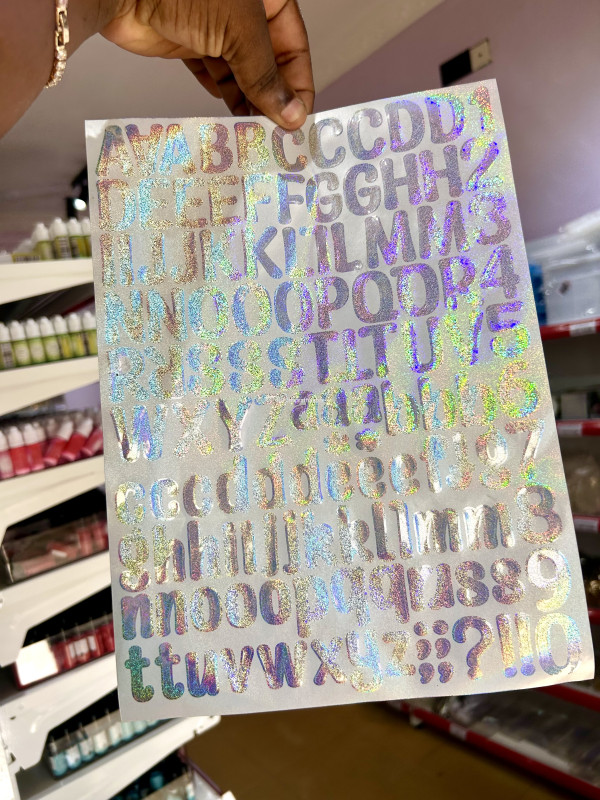 AAAABBCCCDD1
DEEEEFFGGHH2
IIJJKKLLLMM3
NNOOOOPQDDP4
RUSSSSTITUV5
WXYZaaaabbbb6
ccccdddeeeefg7
ghhiijjkkllmm8
nnooopqqussss9
ttuvwxyz;;?!!0